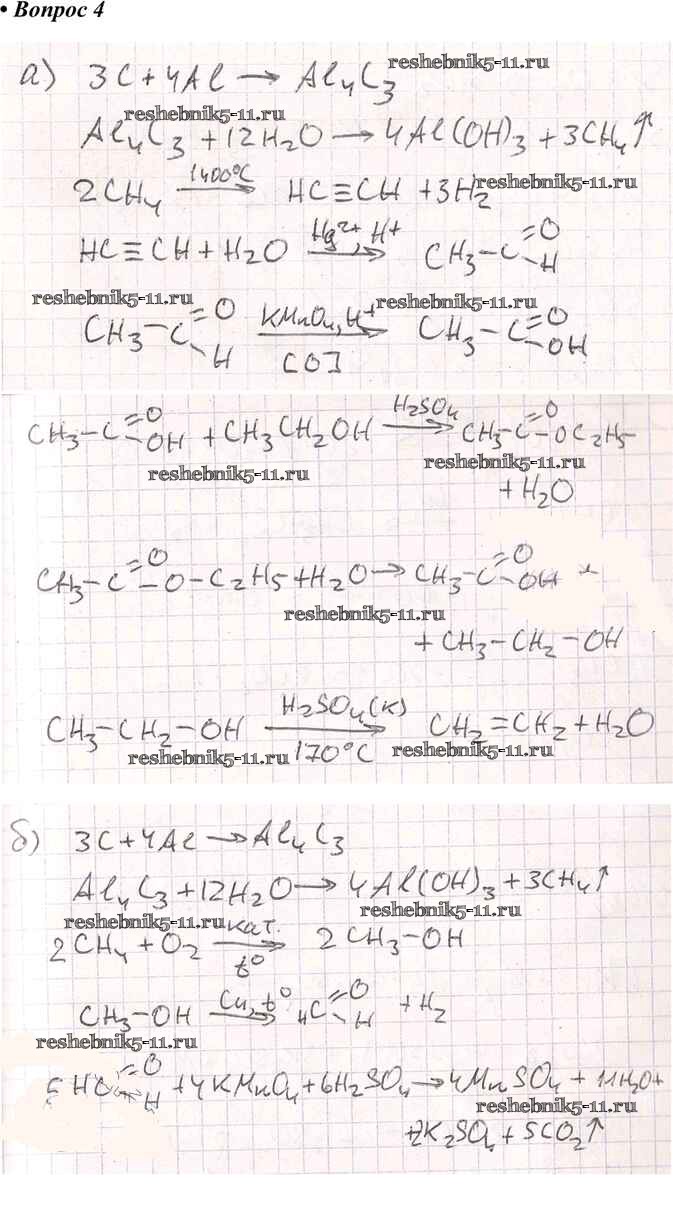 • Вопрос 4
а) 3C + 4Al → Al₄C₃
reshebnik5-11.ru
reshebnik5-11.ru
Al₄C₃ + 12H₂O → 4Al(OH)₃ + 3CH₄↑
2CH₄ 1400°C → HC≡CH + 3H₂
reshebnik5-11.ru
HC≡CH + H₂O Hg²⁺, H⁺ → CH₃-C=O-H
reshebnik5-11.ru
reshebnik5-11.ru
CH₃-C=O-H KMnO₄, H⁺ → [O] CH₃-C=O-OH
CH₃-C=O-OH + CH₃CH₂OH H₂SO₄ → CH₃-C=O-OC₂H₅
reshebnik5-11.ru
reshebnik5-11.ru
+ H₂O
CH₃-C=O-O-C₂H₅ + H₂O → CH₃-C=O-OH +
reshebnik5-11.ru
+ CH₃-CH₂-OH
CH₃-CH₂-OH H₂SO₄(к) → 170°C CH₂=CH₂ + H₂O
reshebnik5-11.ru
reshebnik5-11.ru
б) 3C + 4Al → Al₄C₃
Al₄C₃ + 12H₂O → 4Al(OH)₃ + 3CH₄↑
reshebnik5-11.ru
reshebnik5-11.ru
2CH₄ + O₂ кат. → t° 2CH₃-OH
CH₃-OH Cu, t° → HC=O-H + H₂
reshebnik5-11.ru
5HC=O-H + 4KMnO₄ + 6H₂SO₄ → 4MnSO₄ + 11H₂O +
reshebnik5-11.ru
+2K₂SO₄ + 5CO₂↑